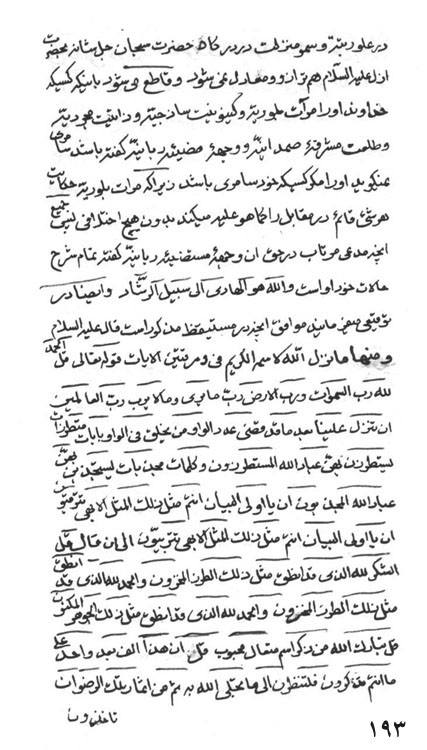 در علو رتبه و سمو منزلت در درگاه حضرت سبحان جل شانه بحضرت
ازل علیه السلام هم ترازو و معادل نمی شود و قاطع می شود باینکه کسیکه
خداوند او را مرآت بلوریّه و کینونیت ساذجیّه و ذاتیت هویّه
و طلعت مشرقهٔ صمدانیّه و وجههٔ مضیئهٔ ربانیّه گفته باشد سامری
نمیگوید او را مگر کسیکه خود سامری باشد زیرا که مرآت بلوریّه حکایت
هر شیئ قائم در مقابل را کما هو علیه میکند بدون هیچ اختلافی پس جمیع
آنچه مدعی مرتاب در حق آن وجههٔ مستضیئهٔ ربانیّه گفته تمام شرح
حالات خود او است والله هو الهادی الی سبیل الرشاد و ایضا در
توقیعی میفرماید موافق آنچه در مستیقظ مذکور است قال علیه السلام
و منها ما نزل الله لاسم الکریم فی الآیات قوله تعالی قل الحمد
لله رب السموات و رب الارض رب ما یری و ما لا یری رب العالمین
ان نتزل علینا بعد ما قد قضی عدد الواو من یخلق فی الواو بایات
لیستطرزن بهن عباد الله المستطرزون و کلمات
عباد الله ان یا اولی البیان انتم مثل ذلک المثل الابهی تتربیون
ان یا اولی البیان انتم مثل ذلک المثل الابهی تتربیون الی ان قال قل
الشکر لله الذی قد انطق مثل ذلک الطرز المخزون و الحمد لله الذی قد انطق
مثل ذلک الطرز المخزون و الحمد لله الذی قد انطق مثل ذلک الجوهر المکنون
قل تبارک الله من ذکر اسم متعال محبوب قل ان هذا الف بعد واحد علی
ما انتم تذکرون فلتنظرن الی ما یتجلی الله به ثم من اثمار تلک الرضوان
تاخذون
۱۹۳